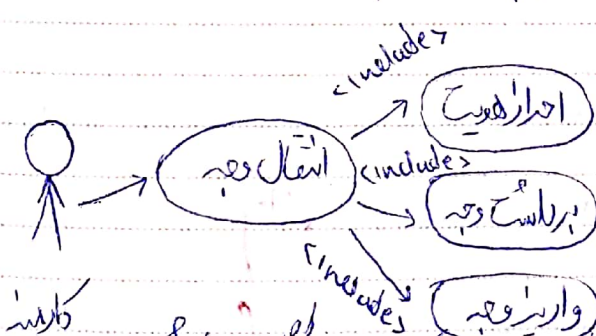 <include>
احراز هویت
انتقال وجه
<include>
برداشت وجه
<include>
واریز وجه